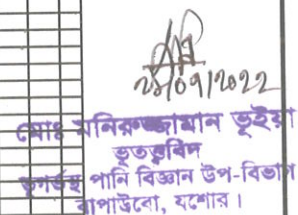 ২৮/০৭/২০২২
মোঃ মনিরুজ্জামান ভূইয়া
ভূতত্ত্ববিদ
ভূগর্ভস্থ পানি বিজ্ঞান উপ-বিভাগ
বাপাউবো, যশোর।